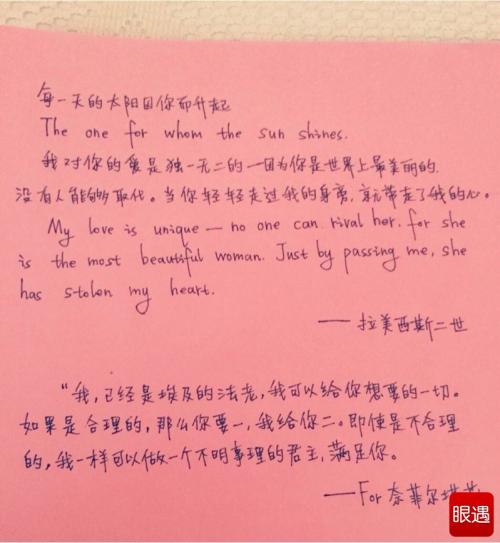 每一天的太阳因你而升起
The one for whom the sun shines.
我对你的爱是独一无二的一因为你是世界上最美丽的.
没有人能够取代。当你轻轻走过我的身旁,就带走了我的心。
My love is unique — no one can rival her, for she
is the most beautiful woman. Just by passing me, she
has stolen my heart.
——拉美西斯二世
“我,已经是埃及的法老,我可以给你想要的一切。
如果是合理的,那么你要一,我给你二。即使是不合理
的,我一样可以做一个不明事理的君主,满足你。
——For 奈菲尔塔
眼遇